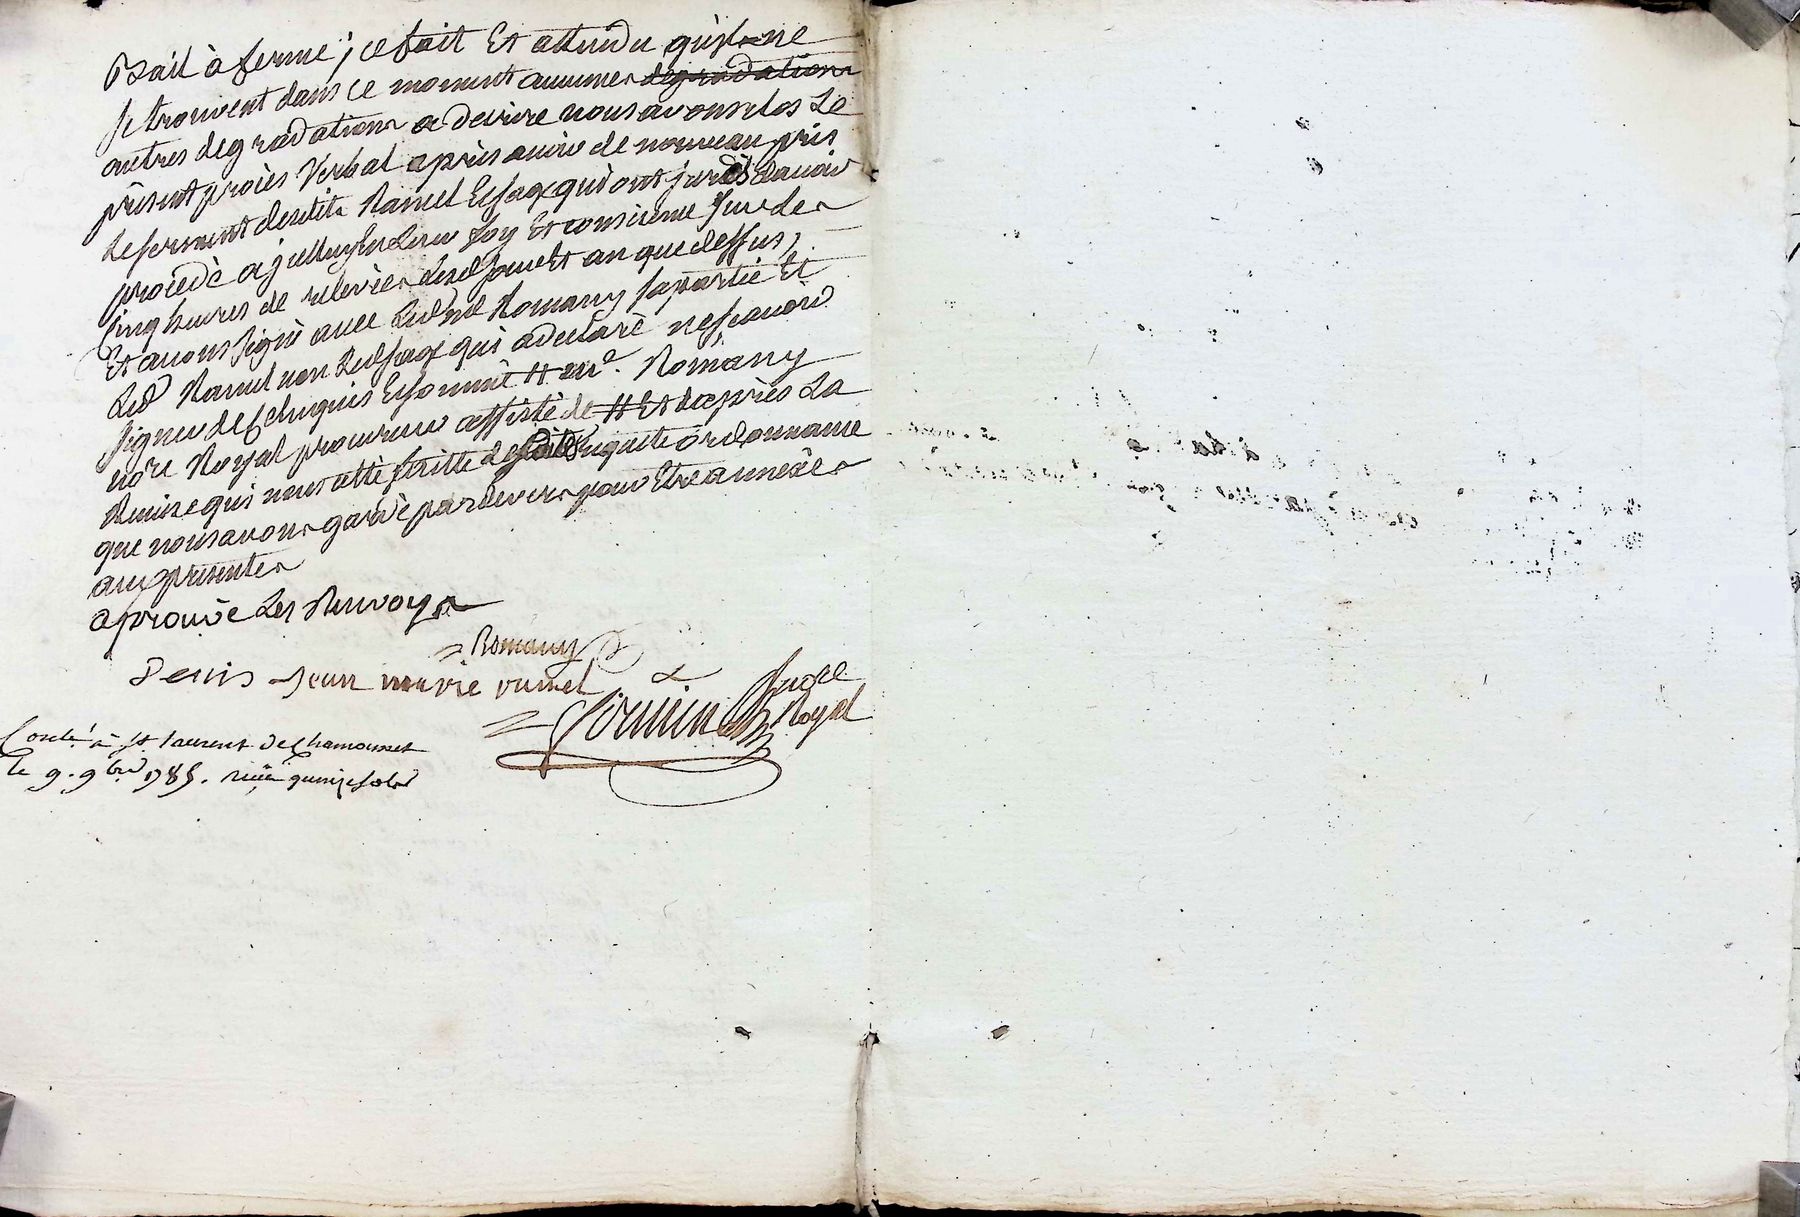 Bail à ferme ; ce fait Et attendu quil ne
se trouvent dans ce moment aucunes degradations
autres degradations a decrire nous avons clos Le
présent procès Verbal après avoir de nouveau pris
le serment desdits Ramel Et qui ont jurés davoir
procedè Leur foy Et conscience sur les
cinq heures de relevèe desd. jour Et an que dessus,
Et avons signé avec Led. me Romany sa partie Et
Led. Ramel non Led. qui a declarè ne sçavoir
signer de ce Enquis Et sommé # me. Romany
nore Royal procureur assisté de # Et daprès La
Remise qui nous a étè faitte desdites requete ordonnance
que nous avons gardé pardevers pour Etre annexèes
aux presentes
aprouvè Les Renvoys
Romany
Denis Jean marie ramel
Juge
Royal
Conté. à st laurent de Chamousset
le 9. 9bre 1785. reçu quinze sols